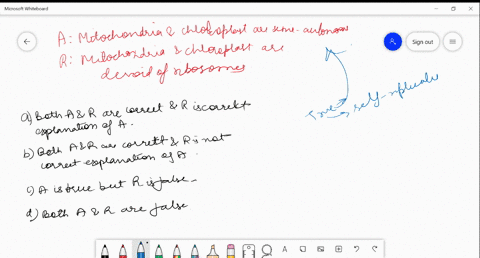 Microsoft Whiteboard
Sign out
A: Mitochondria & chloroplast are semi-autonomous
R: Mitochondria & chloroplast are
devoid of ribosomes
True
self-replicate
a) Both A & R are correct & R is correct
explanation of A.
b) Both A & R are correct & R is not
correct explanation of A.
c) A is true but R is false
d) Both A & R are false